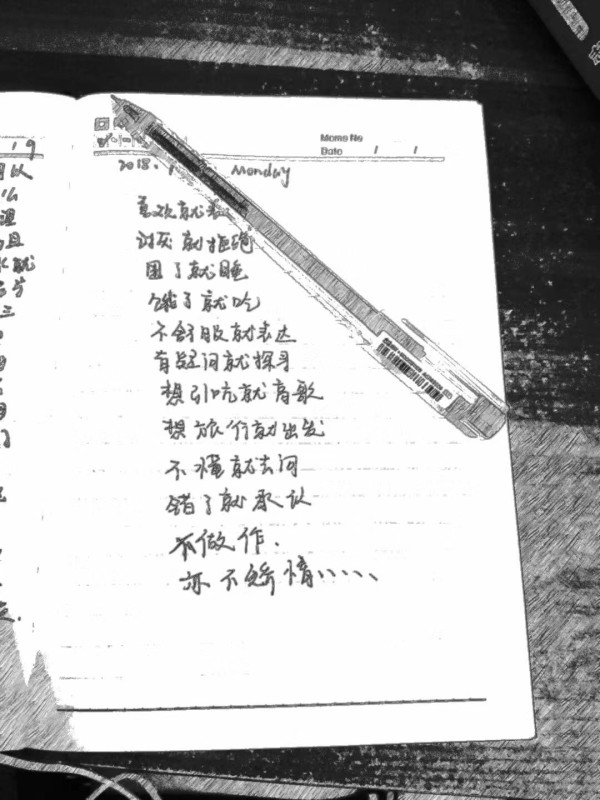 Memo No
Date / /
2018. Monday
喜欢就
讨厌就拒绝
困了就睡
饿了就吃
不舒服就表达
有疑问就探寻
想引吭就高歌
想旅行就出发
不懂就去问
错了就承认
不做作.
亦不矫情、、、、、